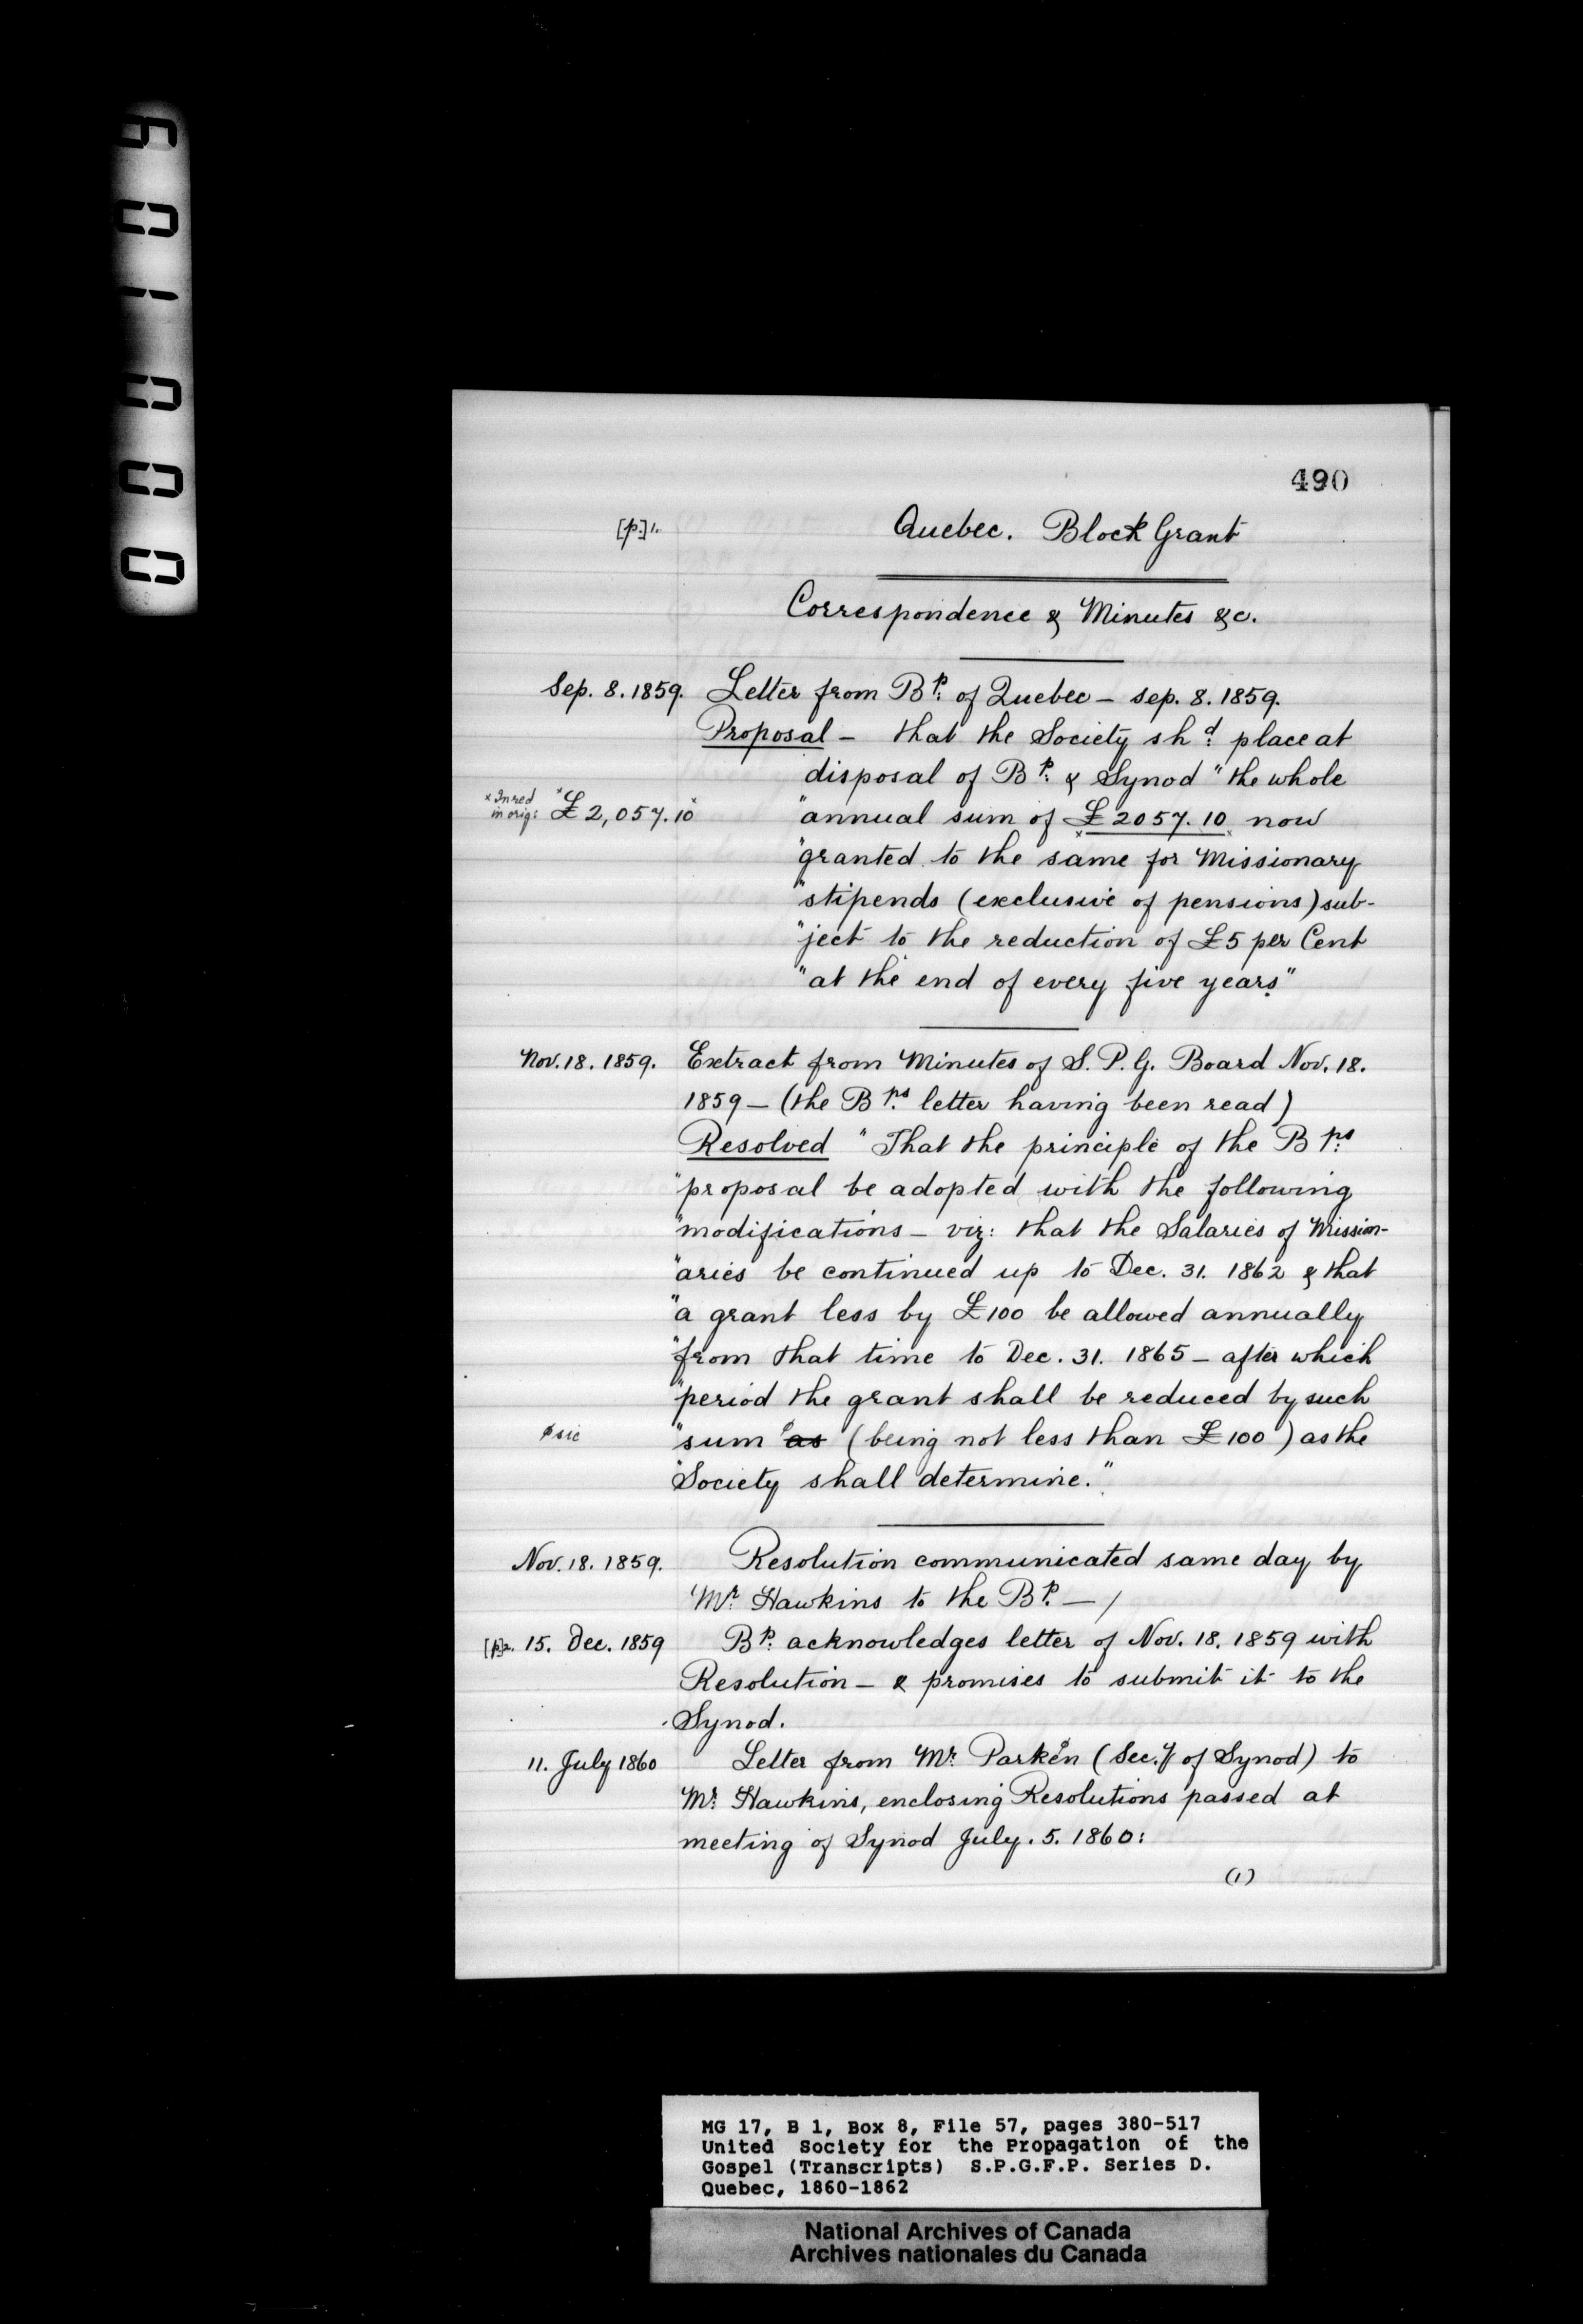 490
[p.] 1. Quebec. Block Grant
Correspondence & Minutes &c.
Sep. 8. 1859. Letter from Bp. of Quebec – Sep. 8. 1859.
Proposal – that the Society shd. place at
disposal of Bp. & Synod "the whole
x In red in orig: x£2,057.10x "annual sum of £2057.10 now
"granted to the same for Missionary
"stipends (exclusive of pensions) sub-
"ject to the reduction of £5 per Cent
"at the end of every five years"
Nov. 18. 1859. Extract from Minutes of S. P. G. Board Nov. 18.
1859 – (the Bps. letter having been read)
Resolved "That the principle of the Bps.
"proposal be adopted with the following
"modifications – viz: that the Salaries of Mission-
"aries be continued up to Dec. 31. 1862 & that
"a grant less by £100 be allowed annually
"from that time to Dec. 31. 1865 – after which
"period the grant shall be reduced by such
ø sic "sum ø as (being not less than £100) as the
"Society shall determine."
Nov. 18. 1859. Resolution communicated same day by
Mr. Hawkins to the Bp. – /
[p.] 2. 15. Dec. 1859 Bp. acknowledges letter of Nov. 18. 1859 with
Resolution – & promises to submit it to the
Synod.
11. July 1860 Letter from Mr. Parken (Sec.y of Synod) to
Mr. Hawkins, enclosing Resolutions passed at
meeting of Synod July. 5. 1860:
(1)
MG 17, B 1, Box 8, File 57, pages 380-517
United Society for the Propagation of the
Gospel (Transcripts) S.P.G.F.P. Series D.
Quebec, 1860-1862
National Archives of Canada
Archives nationales du Canada